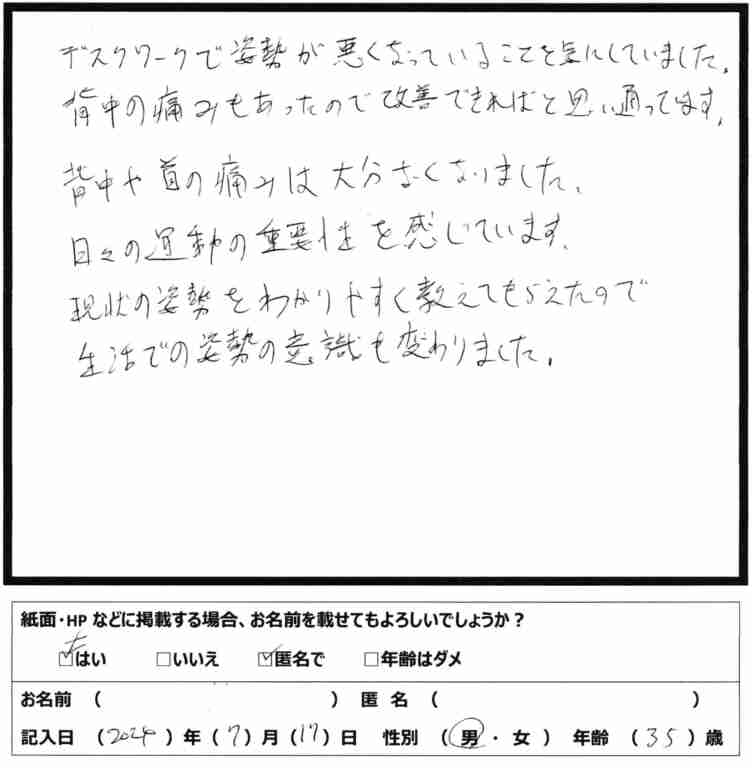 デスクワークで姿勢が悪くなっていることを気にしていました。
背中の痛みもあったので改善できればと思い通ってます。
背中や首の痛みは大分なくなりました。
日々の運動の重要性を感じています。
現状の姿勢をわかりやすく教えてもらえたので
生活での姿勢の意識も変わりました。
紙面・HPなどに掲載する場合、お名前を載せてもよろしいでしょうか？
☑はい □いいえ ☑匿名で □年齢はダメ
お名前 （ ） 匿名 （ ）
記入日 （2024）年（7）月（17）日 性別 （男・女） 年齢 （35）歳